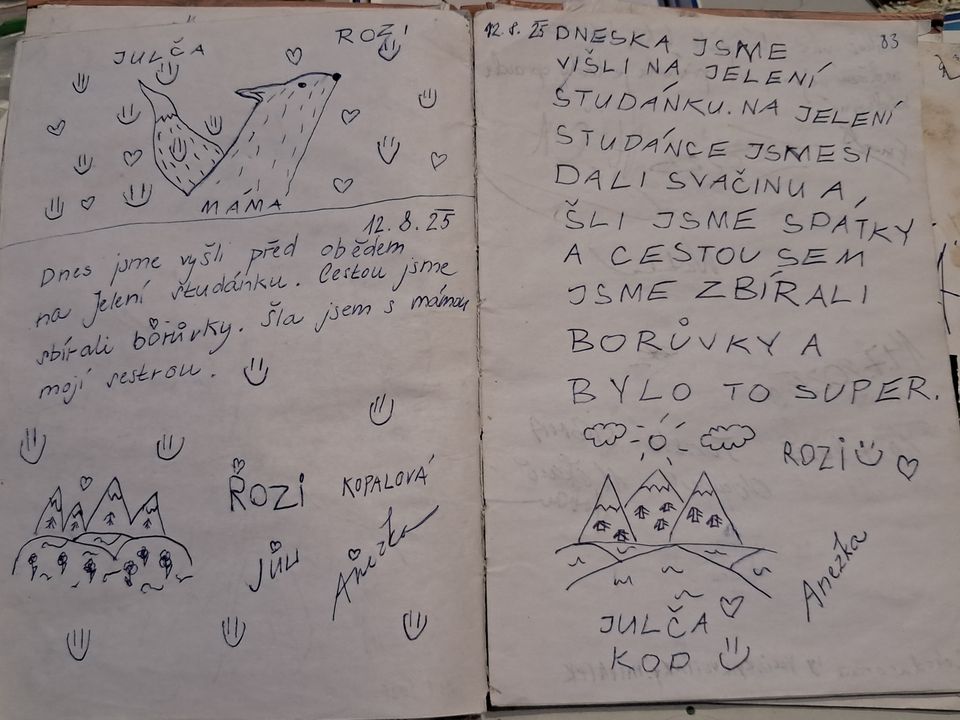 JULČA
ROZI
MÁMA
12.8.25
Dnes jsme vyšli před obědem
na Jelení studánku. Cestou jsme
sbírali borůvky. Šla jsem s mámou
mojí sestrou.
ROZI
KOPALOVÁ
JŮLI
Anežka
12.8.25 DNESKA JSME
83
VIŠLI NA JELENÍ
STUDÁNKU. NA JELENÍ
STUDÁNCE JSMESI
DALI SVAČINU A
ŠLI JSME SPÁTKY
A CESTOU SEM
JSME ZBÍRALI
BORŮVKY A
BYLO TO SUPER.
ROZI
Anežka
JULČA
KOP